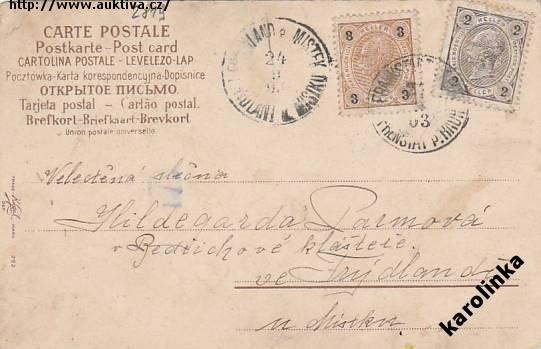 http://www.auktiva.cz/
2879
CARTE POSTALE
Postkarte - Post card
CARTOLINA POSTALE - LEVELEZO-LAP
Pocztówka - Karta korespondencyjna - Dopisnice
ОТКРЫТОЕ ПИСЬМО.
Tarjeta postal - Cartão postal.
Brefkort - Briefkaart - Brevkort
Union postale universelle.
MISTEK
24
3
3
3
3
KELLER
2
2
2
2
KELLER
FRENŠTÁT P. RADH.
03
Veletěná slečna
Hildegarda Parmová
v Bedřichově klášteře
ve Frýdlandě
u Místku
karolinka